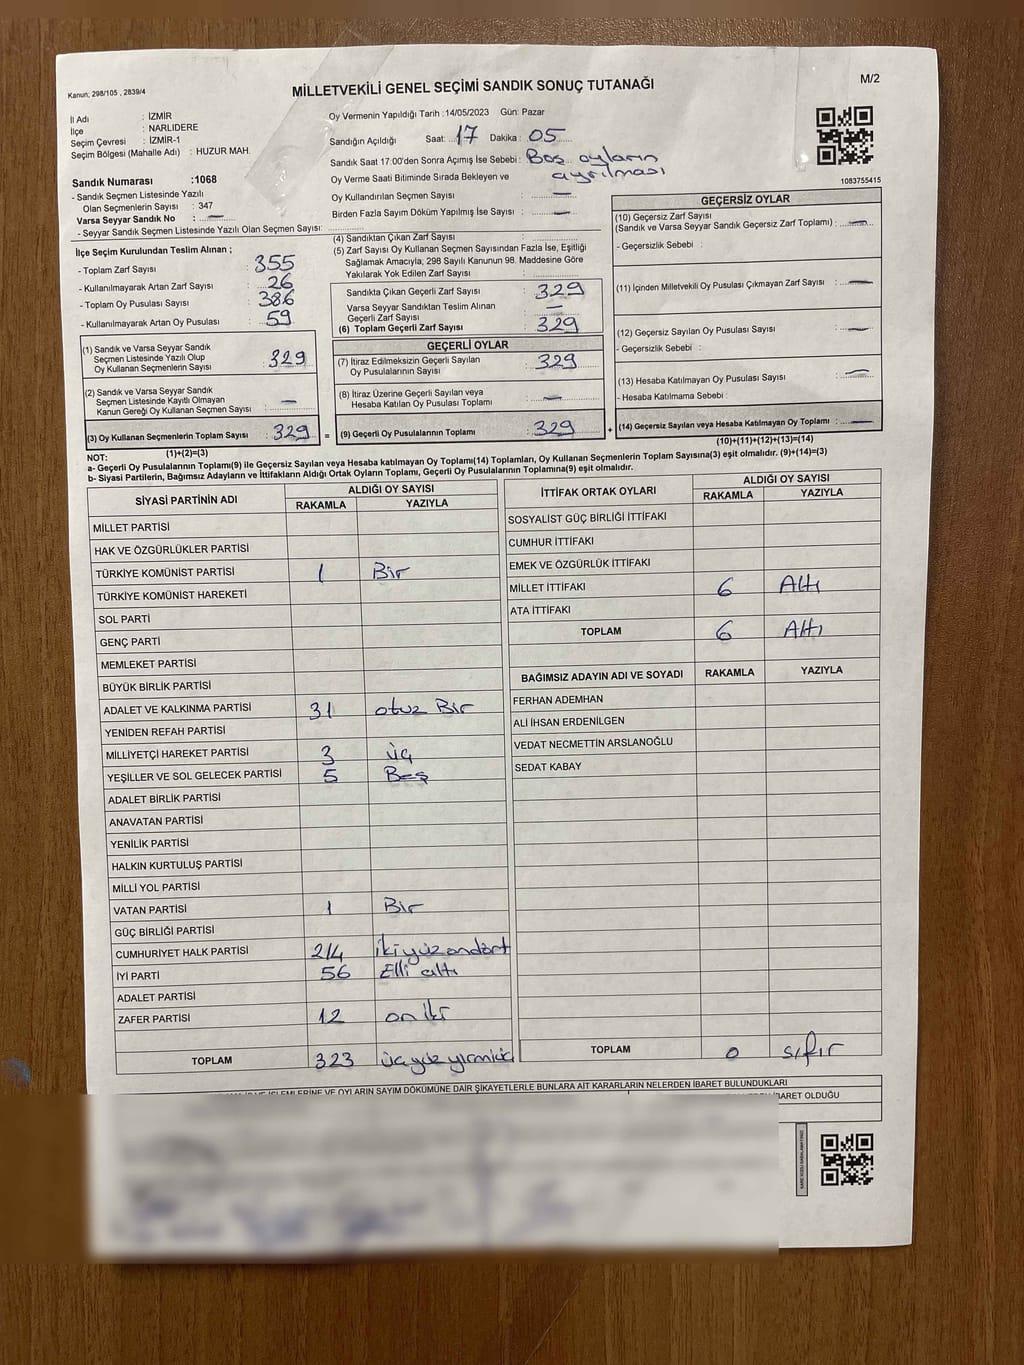 Kanun; 298/105 , 2839/4
MİLLETVEKİLİ GENEL SEÇİMİ SANDIK SONUÇ TUTANAĞI
M/2
İl Adı : İZMİR
İlçe : NARLIDERE
Seçim Çevresi : İZMİR-1
Seçim Bölgesi (Mahalle Adı) : HUZUR MAH.
Sandık Numarası :1068
- Sandık Seçmen Listesinde Yazılı
Olan Seçmenlerin Sayısı : 347
Varsa Seyyar Sandık No : —
- Seyyar Sandık Seçmen Listesinde Yazılı Olan Seçmen Sayısı:
Oy Vermenin Yapıldığı Tarih :14/05/2023 Gün: Pazar
Sandığın Açıldığı Saat: 17 Dakika: 05
Sandık Saat 17:00'den Sonra Açımış İse Sebebi : Boş oyların
ayrılması
Oy Verme Saati Bitiminde Sırada Bekleyen ve
Oy Kullandırılan Seçmen Sayısı : —
Birden Fazla Sayım Döküm Yapılmış İse Sayısı : —
1083755415
İlçe Seçim Kurulundan Teslim Alınan ;
- Toplam Zarf Sayısı : 355
- Kullanılmayarak Artan Zarf Sayısı : 26
- Toplam Oy Pusulası Sayısı : 386
- Kullanılmayarak Artan Oy Pusulası : 59
(1) Sandık ve Varsa Seyyar Sandık
Seçmen Listesinde Yazılı Olup
Oy Kullanan Seçmenlerin Sayısı : 329
(2) Sandık ve Varsa Seyyar Sandık
Seçmen Listesinde Kayıtlı Olmayan
Kanun Gereği Oy Kullanan Seçmen Sayısı : —
(3) Oy Kullanan Seçmenlerin Toplam Sayısı : 329 =
(1)+(2)=(3)
(4) Sandıktan Çıkan Zarf Sayısı :
(5) Zarf Sayısı Oy Kullanan Seçmen Sayısından Fazla İse, Eşitliği
Sağlamak Amacıyla; 298 Sayılı Kanunun 98. Maddesine Göre
Yakılarak Yok Edilen Zarf Sayısı :
Sandıkta Çıkan Geçerli Zarf Sayısı : 329
Varsa Seyyar Sandıktan Teslim Alınan
Geçerli Zarf Sayısı : —
(6) Toplam Geçerli Zarf Sayısı : 329
GEÇERLİ OYLAR
(7) İtiraz Edilmeksizin Geçerli Sayılan
Oy Pusulalarının Sayısı : 329
(8) İtiraz Üzerine Geçerli Sayılan veya
Hesaba Katılan Oy Pusulası Toplamı : —
(9) Geçerli Oy Pusulalarının Toplamı : 329 +
GEÇERSİZ OYLAR
(10) Geçersiz Zarf Sayısı
(Sandık ve Varsa Seyyar Sandık Geçersiz Zarf Toplamı) : —
- Geçersizlik Sebebi :
(11) İçinden Milletvekili Oy Pusulası Çıkmayan Zarf Sayısı : —
(12) Geçersiz Sayılan Oy Pusulası Sayısı : —
- Geçersizlik Sebebi :
(13) Hesaba Katılmayan Oy Pusulası Sayısı : —
- Hesaba Katılmama Sebebi :
(14) Geçersiz Sayılan veya Hesaba Katılmayan Oy Toplamı : —
(10)+(11)+(12)+(13)=(14)
NOT:
a- Geçerli Oy Pusulalarının Toplamı(9) ile Geçersiz Sayılan veya Hesaba katılmayan Oy Toplamı(14) Toplamları, Oy Kullanan Seçmenlerin Toplam Sayısına(3) eşit olmalıdır. (9)+(14)=(3)
b- Siyasi Partilerin, Bağımsız Adayların ve İttifakların Aldığı Ortak Oyların Toplamı, Geçerli Oy Pusulalarının Toplamına(9) eşit olmalıdır.
SİYASİ PARTİNİN ADI ALDIĞI OY SAYISI
RAKAMLA YAZIYLA
MİLLET PARTİSİ
HAK VE ÖZGÜRLÜKLER PARTİSİ
TÜRKİYE KOMÜNİST PARTİSİ 1 Bir
TÜRKİYE KOMÜNİST HAREKETİ
SOL PARTİ
GENÇ PARTİ
MEMLEKET PARTİSİ
BÜYÜK BİRLİK PARTİSİ
ADALET VE KALKINMA PARTİSİ 31 otuz Bir
YENİDEN REFAH PARTİSİ
MİLLİYETÇİ HAREKET PARTİSİ 3 üç
YEŞİLLER VE SOL GELECEK PARTİSİ 5 Beş
ADALET BİRLİK PARTİSİ
ANAVATAN PARTİSİ
YENİLİK PARTİSİ
HALKIN KURTULUŞ PARTİSİ
MİLLİ YOL PARTİSİ
VATAN PARTİSİ 1 Bir
GÜÇ BİRLİĞİ PARTİSİ
CUMHURİYET HALK PARTİSİ 214 ikiyüzondört
İYİ PARTİ 56 Elli altı
ADALET PARTİSİ
ZAFER PARTİSİ 12 on iki
TOPLAM 323 üçyüzyirmiüç
İTTİFAK ORTAK OYLARI ALDIĞI OY SAYISI
RAKAMLA YAZIYLA
SOSYALİST GÜÇ BİRLİĞİ İTTİFAKI
CUMHUR İTTİFAKI
EMEK VE ÖZGÜRLÜK İTTİFAKI
MİLLET İTTİFAKI 6 Altı
ATA İTTİFAKI
TOPLAM 6 Altı
BAĞIMSIZ ADAYIN ADI VE SOYADI RAKAMLA YAZIYLA
FERHAN ADEMHAN
ALİ İHSAN ERDENİLGEN
VEDAT NECMETTİN ARSLANOĞLU
SEDAT KABAY
TOPLAM 0 sıfır
İŞLEMLERİNE VE OYLARIN SAYIM DÖKÜMÜNE DAİR ŞİKAYETLERLE BUNLARA AİT KARARLARIN NELERDEN İBARET BULUNDUKLARI
İBARET OLDUĞU